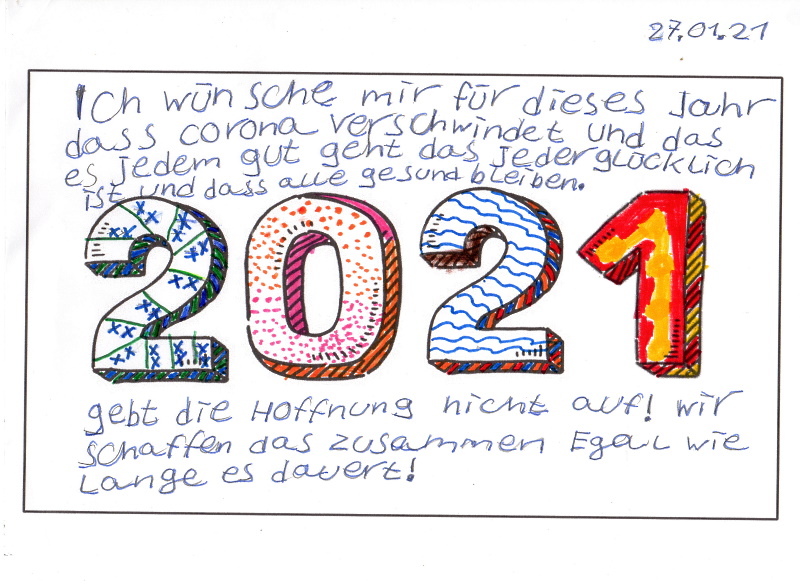 27.01.21
Ich wünsche mir für dieses Jahr
dass corona verschwindet und das
es jedem gut geht das jeder glücklich
ist und dass alle gesund bleiben.
2021
gebt die Hoffnung nicht auf! wir
schaffen das zusammen Egal wie
Lange es dauert!